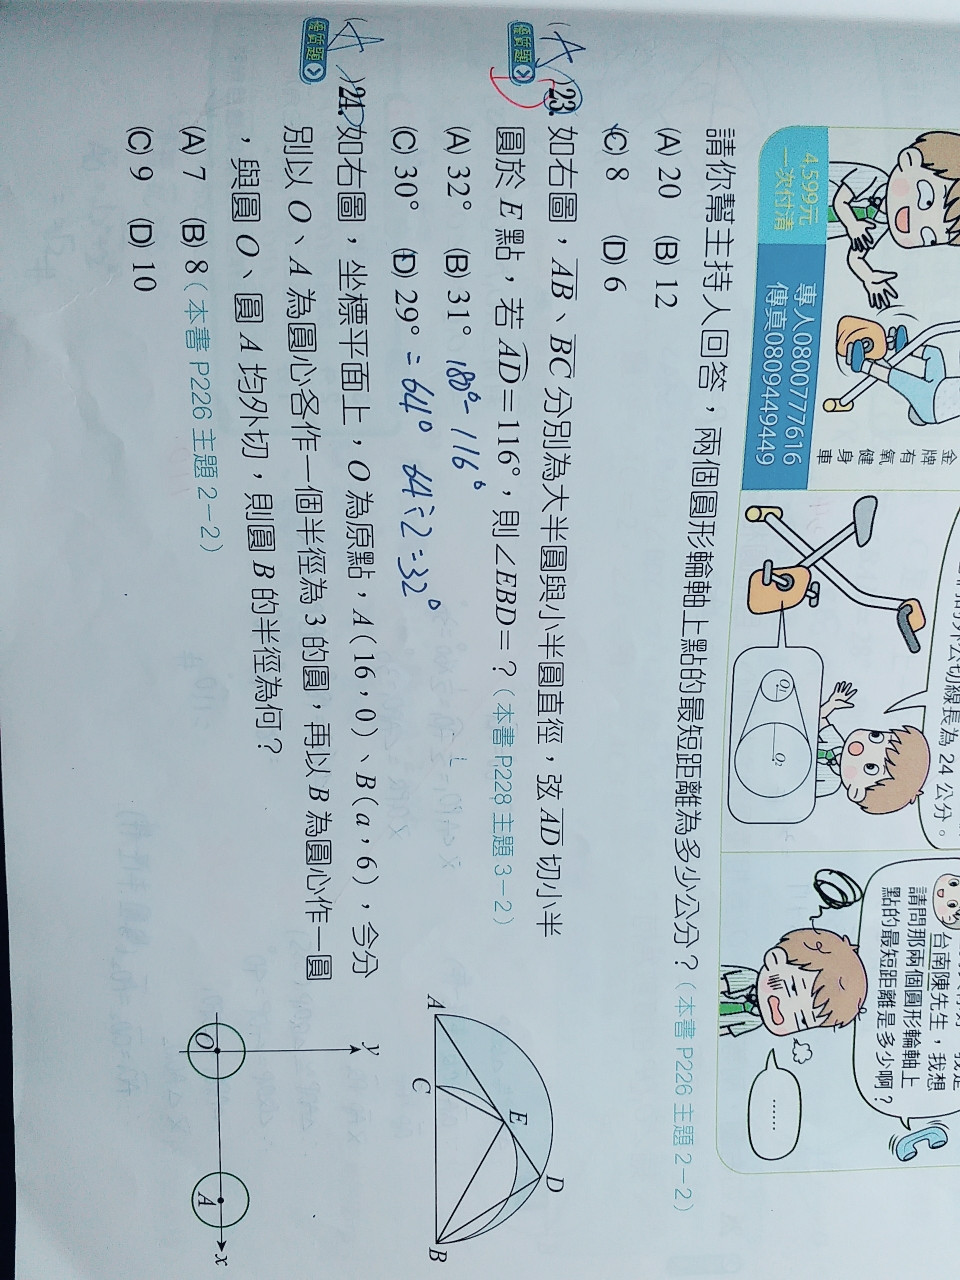 4,599元
一次付清
專人0800777616
傳真0809449449
金牌有氧健身車
外公切線長為 24 公分。
O₁
O₂
台南陳先生，我想
請問那兩個圓形輪軸上
點的最短距離是多少啊？
……
請你幫主持人回答，兩個圓形輪軸上點的最短距離為多少公分？（本書 P226 主題 2－2）
(A) 20 (B) 12
(C) 8 (D) 6
優質題
23. 如右圖，AB、BC 分別為大半圓與小半圓直徑，弦 AD 切小半
圓於 E 點，若 AD＝116°，則∠EBD＝？（本書 P228 主題 3－2）
(A) 32° (B) 31° 180°-116°
(C) 30° (D) 29° =64° 64÷2=32°
A
C
E
D
B
優質題
24. 如右圖，坐標平面上，O 為原點，A（16，0）、B（a，6），今分
別以 O、A 為圓心各作一個半徑為 3 的圓，再以 B 為圓心作一圓
，與圓 O、圓 A 均外切，則圓 B 的半徑為何？
(A) 7 (B) 8（本書 P226 主題 2－2）
(C) 9 (D) 10
y
O
A
x